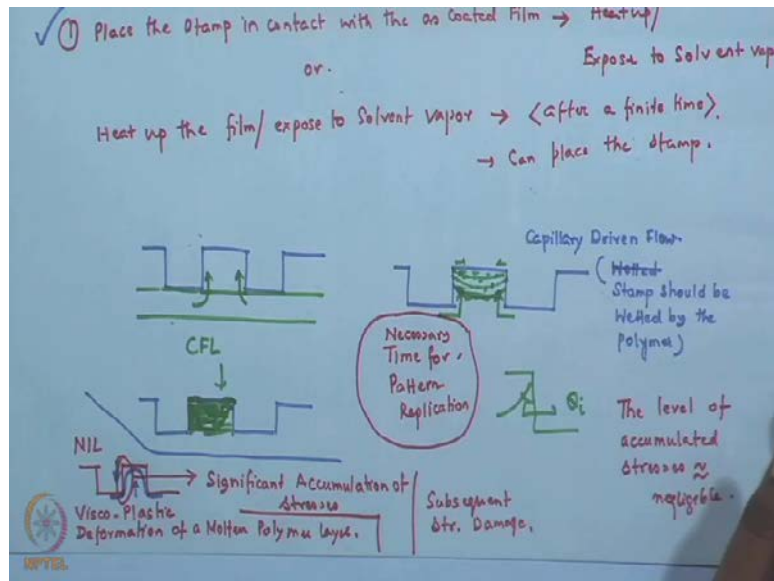 ① Place the Stamp in contact with the as coated Film → Heat up/
Expose to Solvent vap
or.
Heat up the film/ expose to Solvent Vapor → <after a finite time>.
→ Can place the Stamp.
Capillary Driven Flow.
(Wetted
Stamp should be
Wetted by the
polymer)
CFL
Necessary
Time for
Pattern
Replication
θi
The level of
accumulated
stresses ≈
negligible.
NIL
→ Significant Accumulation of
Stresses
Visco-Plastic
Deformation of a Molten Polymer layer.
Subsequent
Str. Damage.
NPTEL